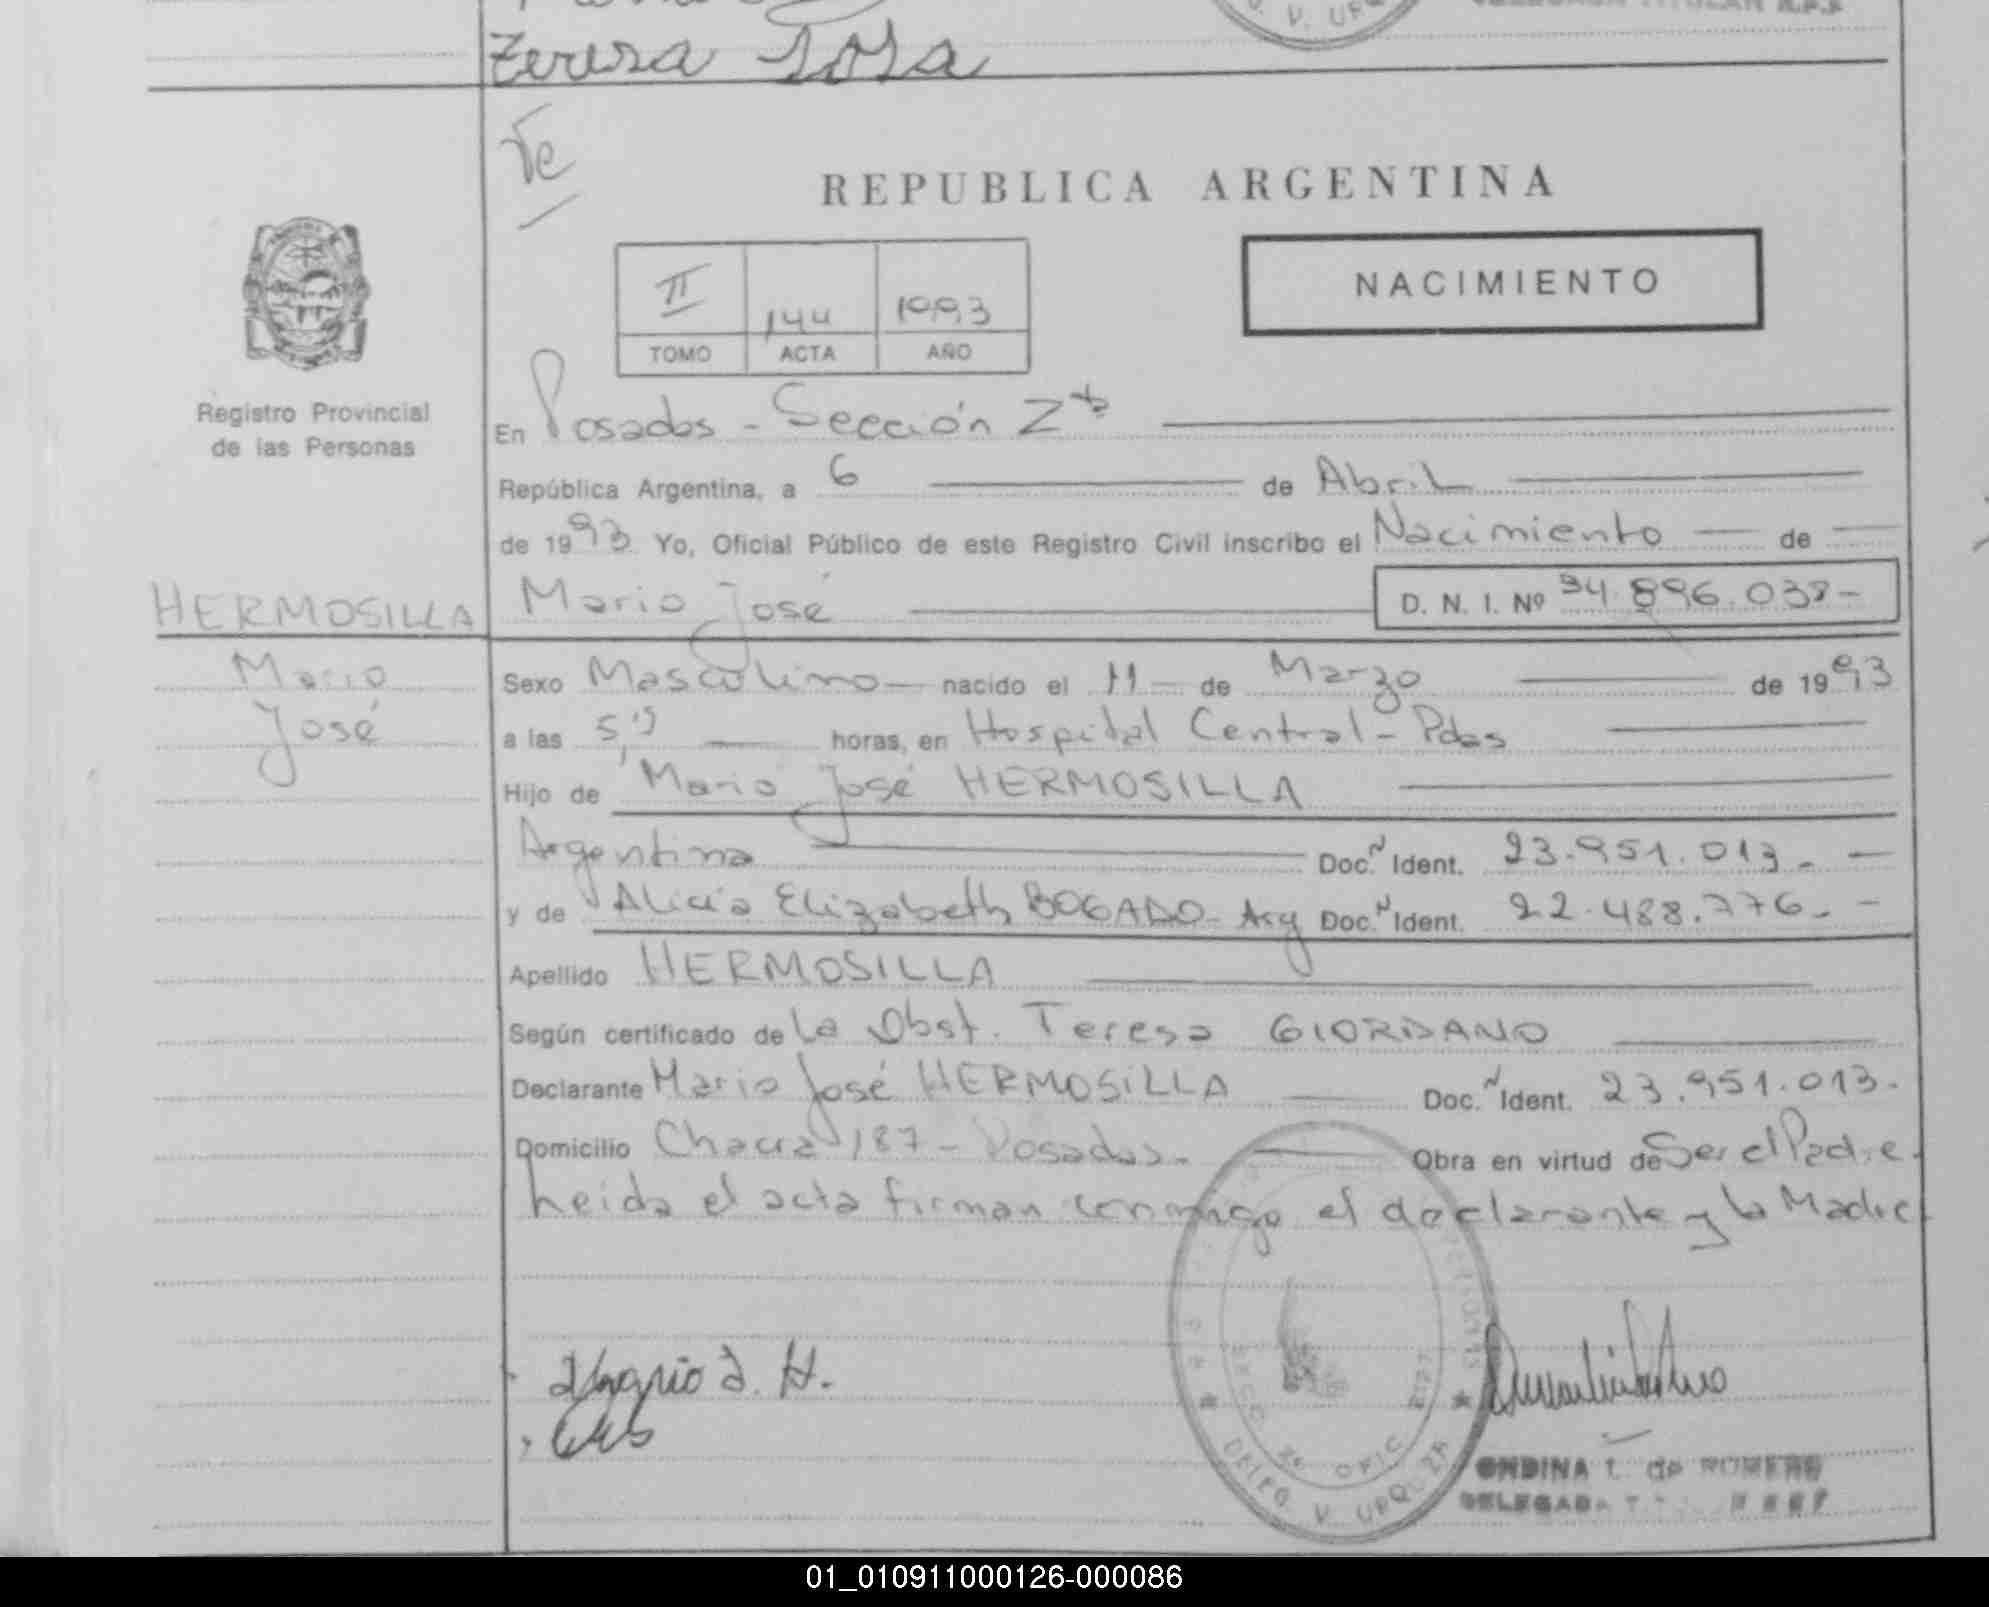 Teresa Sosa
REPUBLICA ARGENTINA
NACIMIENTO
II 144 1993
TOMO ACTA AÑO
Registro Provincial
de las Personas
En Posadas - Sección 2
República Argentina, a 6 de Abril
de 1993 Yo, Oficial Público de este Registro Civil inscribo el Nacimiento de
HERMOSILLA Mario José D. N. I. Nº 34.896.038-
Mario
José
Sexo Masculino nacido el 11 de Marzo de 1993
a las horas, en Hospital Central - Pdas
Hijo de Mario José HERMOSILLA
Argentina Doc. N Ident. 23.951.013.
y de Alicia Elizabeth BOGADO - Arg Doc. N Ident. 22.488.776.
Apellido HERMOSILLA
Según certificado de la Obst. Teresa GIORDANO
Declarante Mario José HERMOSILLA Doc. N Ident. 23.951.013.
Domicilio Chacra 187 - Posadas.- Obra en virtud de Ser el Padre.
Leida el acta firman conmigo el declarante y la Madre
Mario J. H.
DELEG. V. URQUIZA
ONDINA T. de ROMERO
DELEGADA
01_010911000126-000086